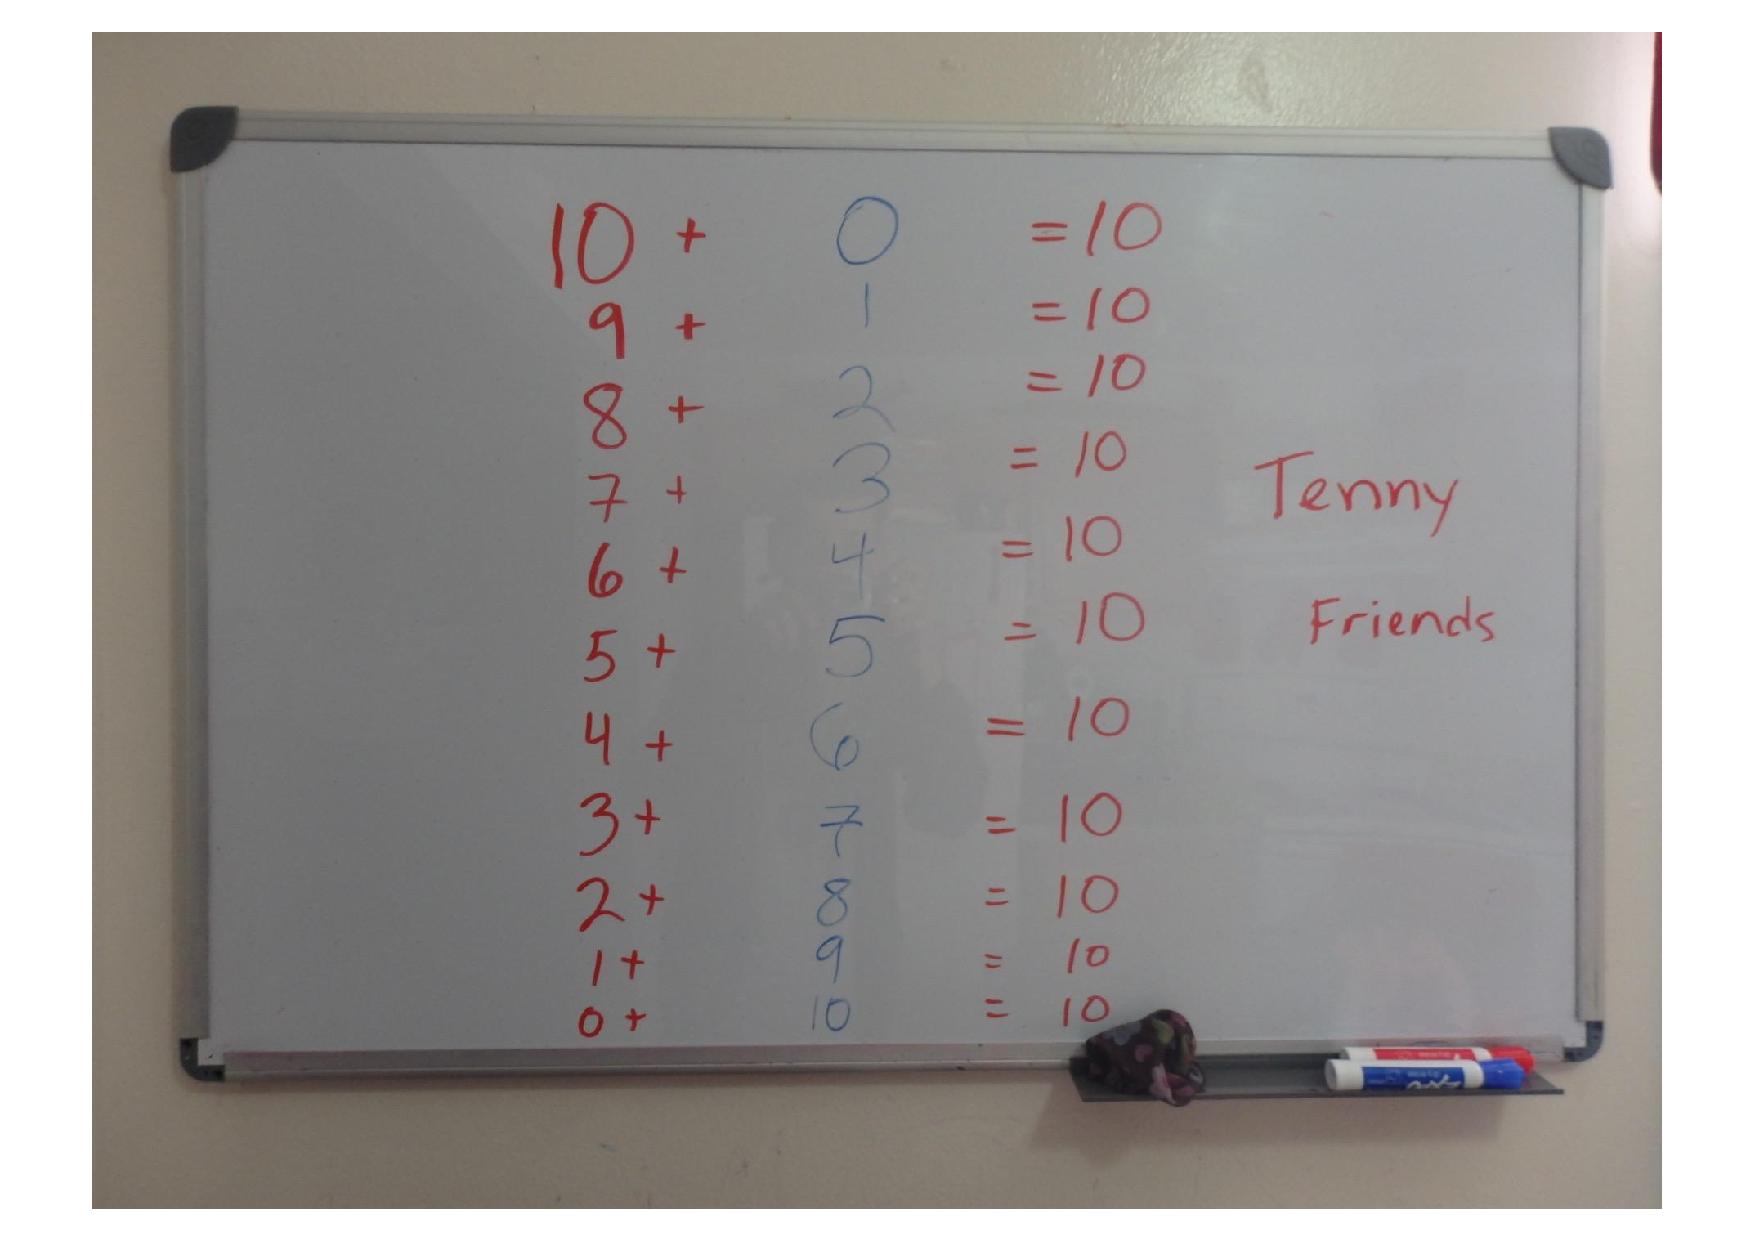 10 + 0 = 10
9 + 1 = 10
8 + 2 = 10
7 + 3 = 10
6 + 4 = 10
5 + 5 = 10
4 + 6 = 10
3 + 7 = 10
2 + 8 = 10
1 + 9 = 10
0 + 10 = 10
Tenny
Friends